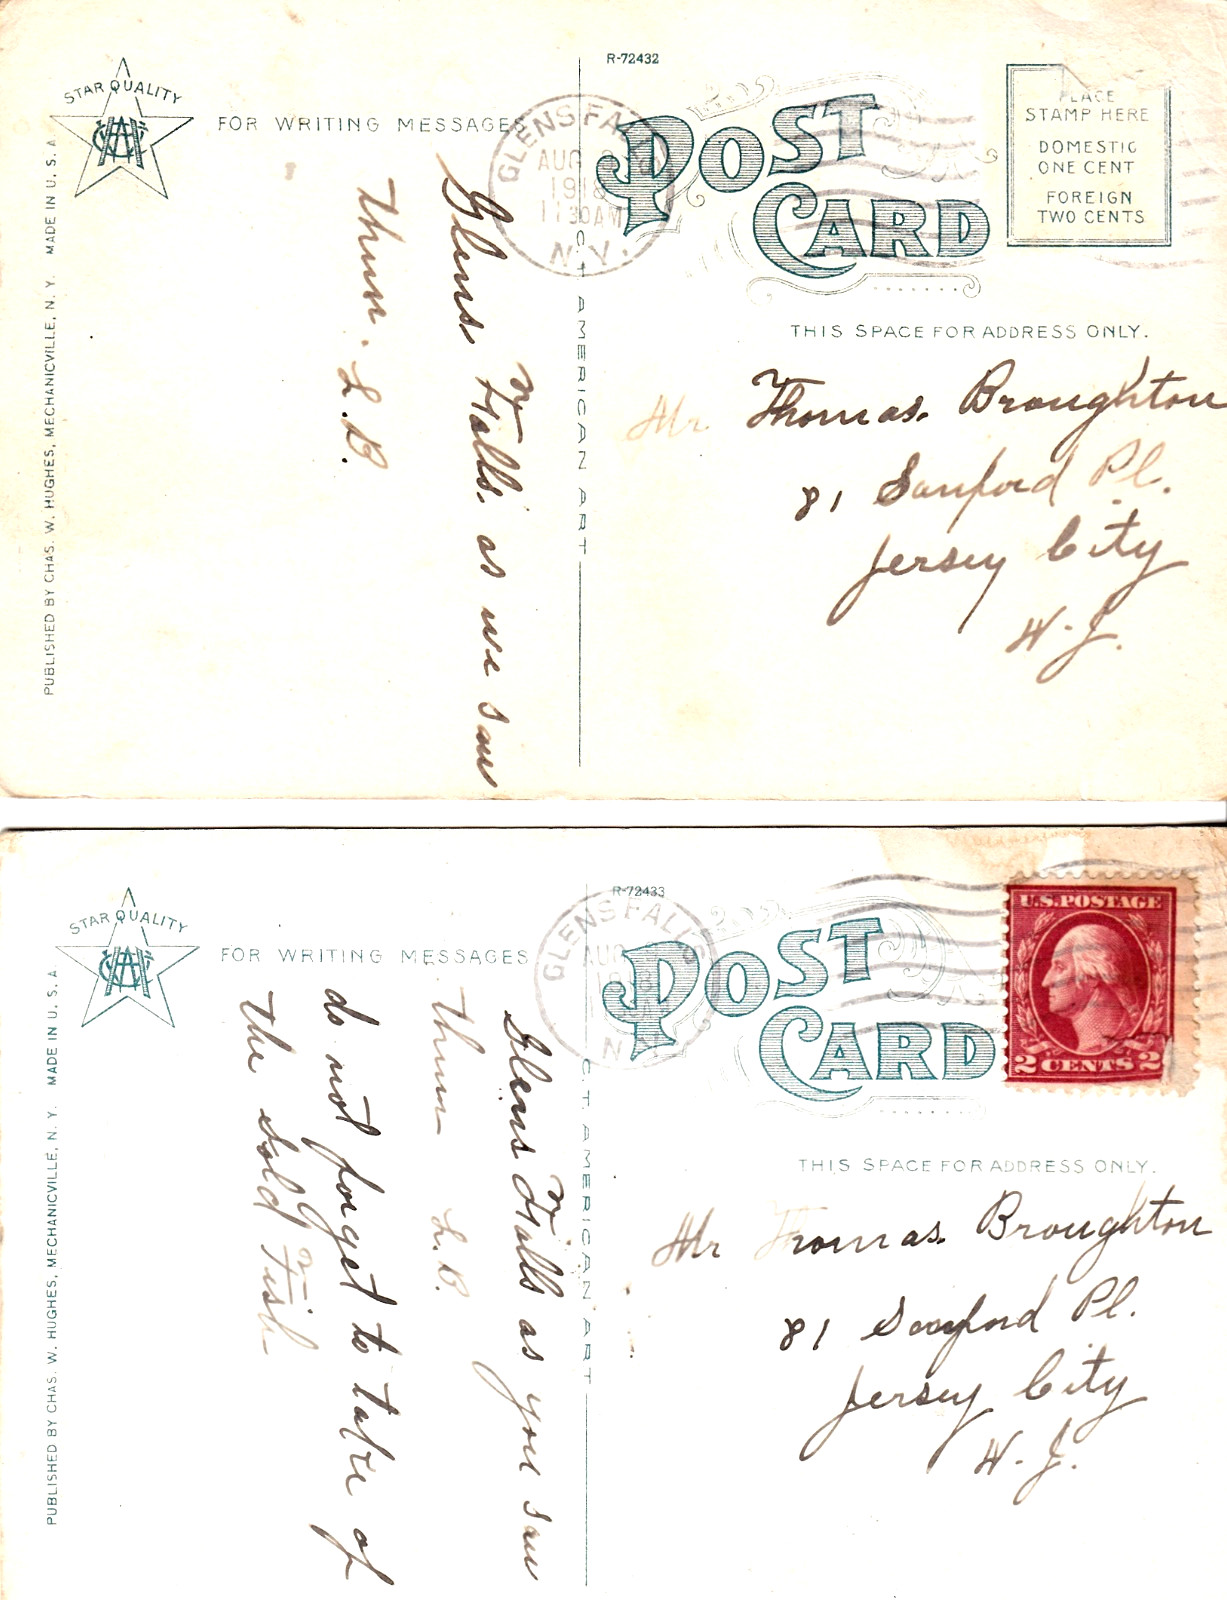 STAR QUALITY
FOR WRITING MESSAGES
R-72432
POST
CARD
PLACE
STAMP HERE
DOMESTIC
ONE CENT
FOREIGN
TWO CENTS
GLENS FA
AUG
1918
11 30 AM
N.Y.
THIS SPACE FOR ADDRESS ONLY.
Mr Thomas. Broughton
81 Sanford Pl.
Jersey City
N. J.
Glens Falls. as we saw
L. B.
C. T. AMERICAN ART
PUBLISHED BY CHAS. W. HUGHES, MECHANICVILLE, N. Y. MADE IN U. S. A.
STAR QUALITY
FOR WRITING MESSAGES
R-72433
POST
CARD
GLENS FALLS
AUG
N.Y.
U.S. POSTAGE
2 CENTS 2
THIS SPACE FOR ADDRESS ONLY.
Mr Thomas. Broughton
81 Sanford Pl.
Jersey City
N. J.
Glens Falls as you saw
L. B.
do not forget to take of
the Gold Fish
C. T. AMERICAN ART
PUBLISHED BY CHAS. W. HUGHES, MECHANICVILLE, N. Y. MADE IN U. S. A.